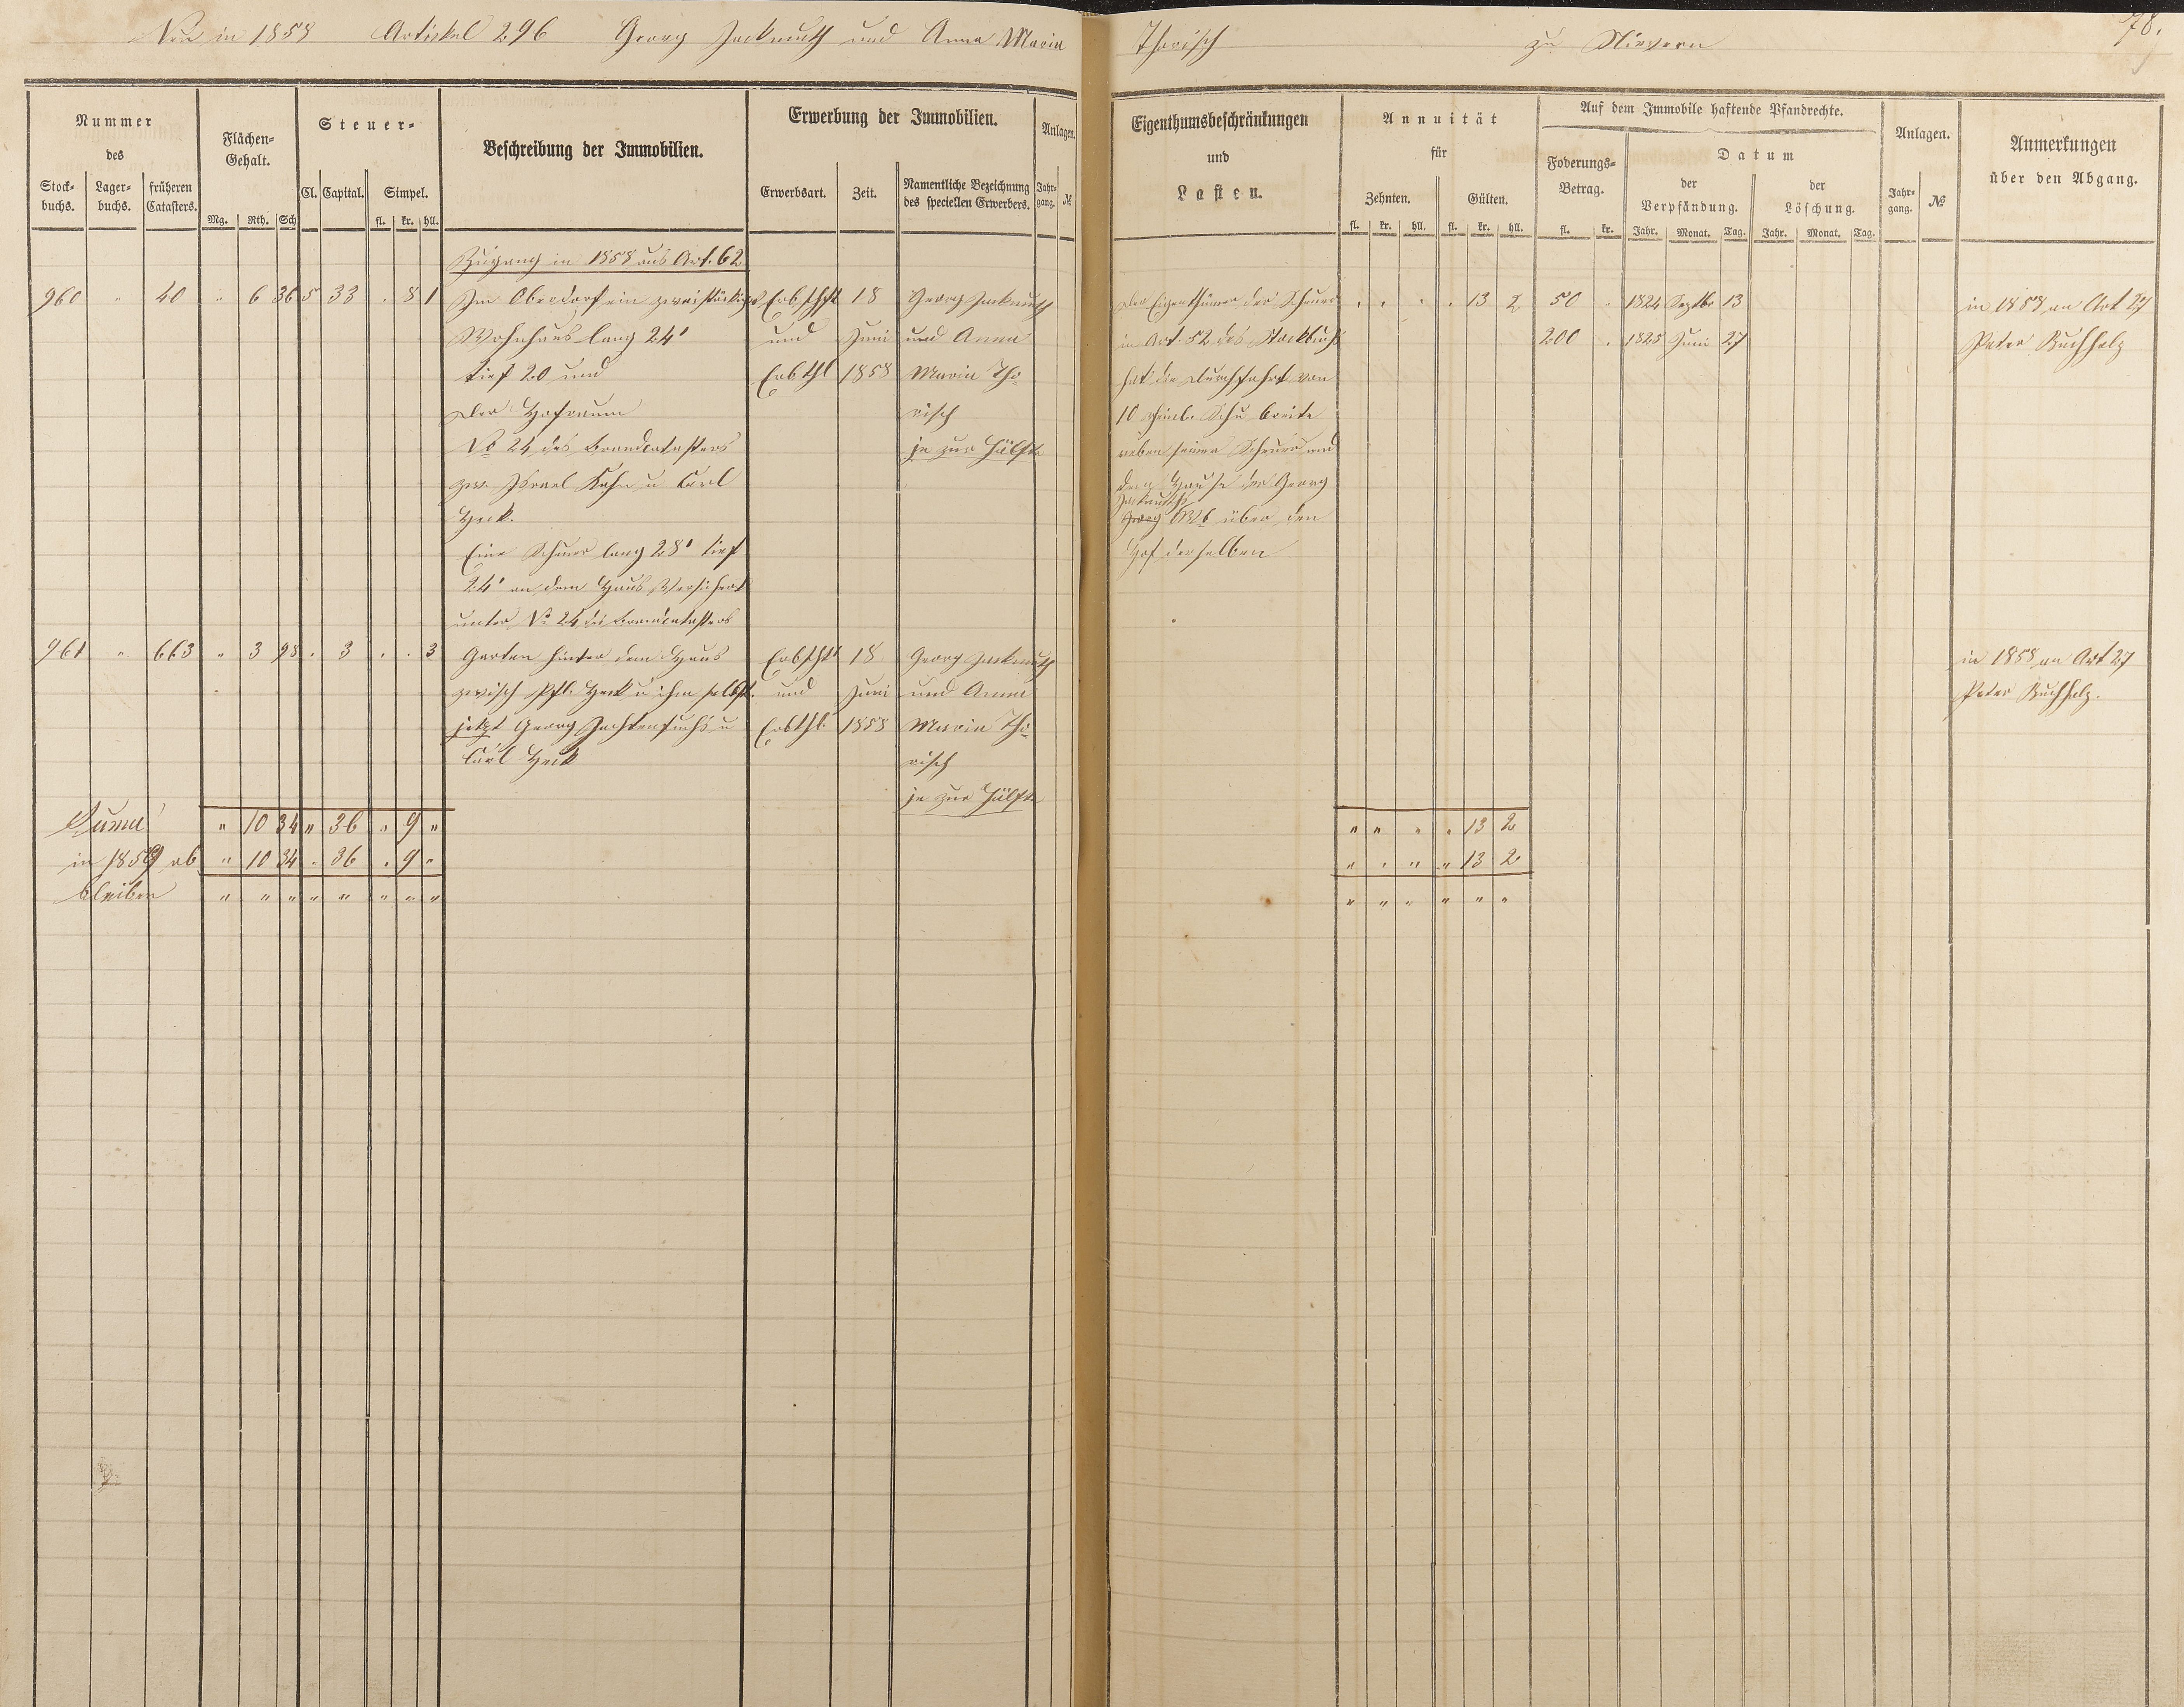 78.
Neu in 1858 Artickel 296 Georg Jackmuth und Anna Maria Thorisch zu Nievern
Nummer
des
Stock-
buchs.
Lager-
buchs.
früheren
Catasters.
Flächen-
Gehalt.
Mg. Rth. Sch
Steuer-
Cl. Capital. Simpel.
fl. kr. hll.
Beschreibung der Immobilien.
Erwerbung der Immobilien.
Erwerbsart. Zeit.
Namentliche Bezeichnung
des speciellen Erwerbers.
Anlagen.
Jahr-
gang. №
Eigenthumsbeschränkungen
und
Lasten.
Annuität
für
Zehnten. Gülten.
fl. kr. hll. fl. kr. hll.
Auf dem Immobile haftende Pfandrechte.
Foderungs-
Betrag.
fl. kr.
Datum
der
Verpfändung.
Jahr. Monat. Tag.
der
Löschung.
Jahr. Monat. Tag.
Anlagen.
Jahr-
gang. №
Anmerkungen
über den Abgang.
Zugang in 1858 aus Art. 62
960 " 40 " 6 36 5 33 . 8 1
Im Oberdorf ein zweistöckiges
Wohnhaus lang 24'
tief 20 und
der Hofraum
No 24 des Brandcatasters
zw. Israel Kahn u Carl
Heck.
Eine Scheuer lang 28' tief
24' an dem Haus Versichert
unter No 24 des Brandcatasters
Erbschft
und
Erbthl
18
Juni
1858
Georg Jackmuth
und Anna
Maria Tho-
risch
je zur Hälfte
Der Eigenthümer der Scheuer
in Art. 52 des Stockbuchs
hat die Durchfahrt von
10 Schu breite
neben seiner Scheuer und
dem Hause der Georg
Jackmuths
Georg Wtb über den
Hof derselben
. . . . 13 2
50 . 1824 Septbr 13
200 . 1825 Juni 27
in 1858 an Art 27
Peter Buchholz
961 " 663 " 3 98 . 3 . . 3
Garten hinter dem Haus
zwisch Phl. Heck u ihm selbst.
jetzt Georg u
Carl Heck
Erbschft
und
Erbthl.
18
Juni
1858
Georg Jackmuth
und Anna
Maria Tho-
risch
je zur Hälfte
in 1858 an Art 27
Peter Buchholz.
Suma " 10 34 " 36 " 9 "
" " " " 13 2
in 1859 ab " 10 34 . 36 . 9 "
" " " " 13 2
bleiben " " " " " " " "
" " " " " "